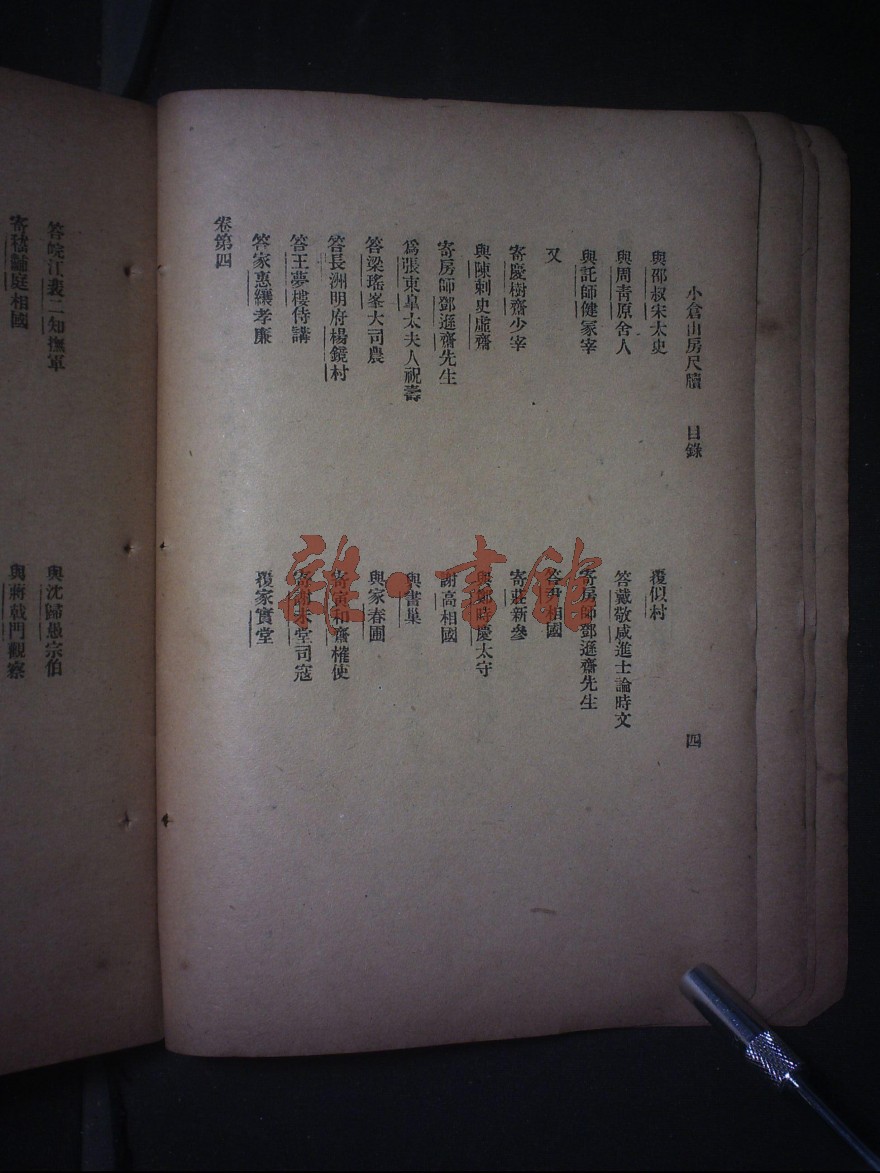 小倉山房尺牘 目錄 四
與邵叔宋太史
覆似村
與周青原舍人
答戴敬咸進士論時文
與託師健冢宰
寄房師鄧遜齋先生
又
答尹相國
寄慶樹齋少宰
寄莊新參
與陳刺史虛齋
與鄭時慶太守
寄房師鄧遜齋先生
謝高相國
爲張東臯太夫人祝壽
與書巢
答梁瑤峯大司農
與家春圃
答長洲明府楊鏡村
寄寅和齋榷使
答王夢樓侍講
寄謝未堂司寇
答家惠纕孝廉
覆家實堂
卷第四
答皖江裴二知撫軍
與沈歸愚宗伯
寄嵇黼庭相國
與蔣戟門觀察
雜·書館